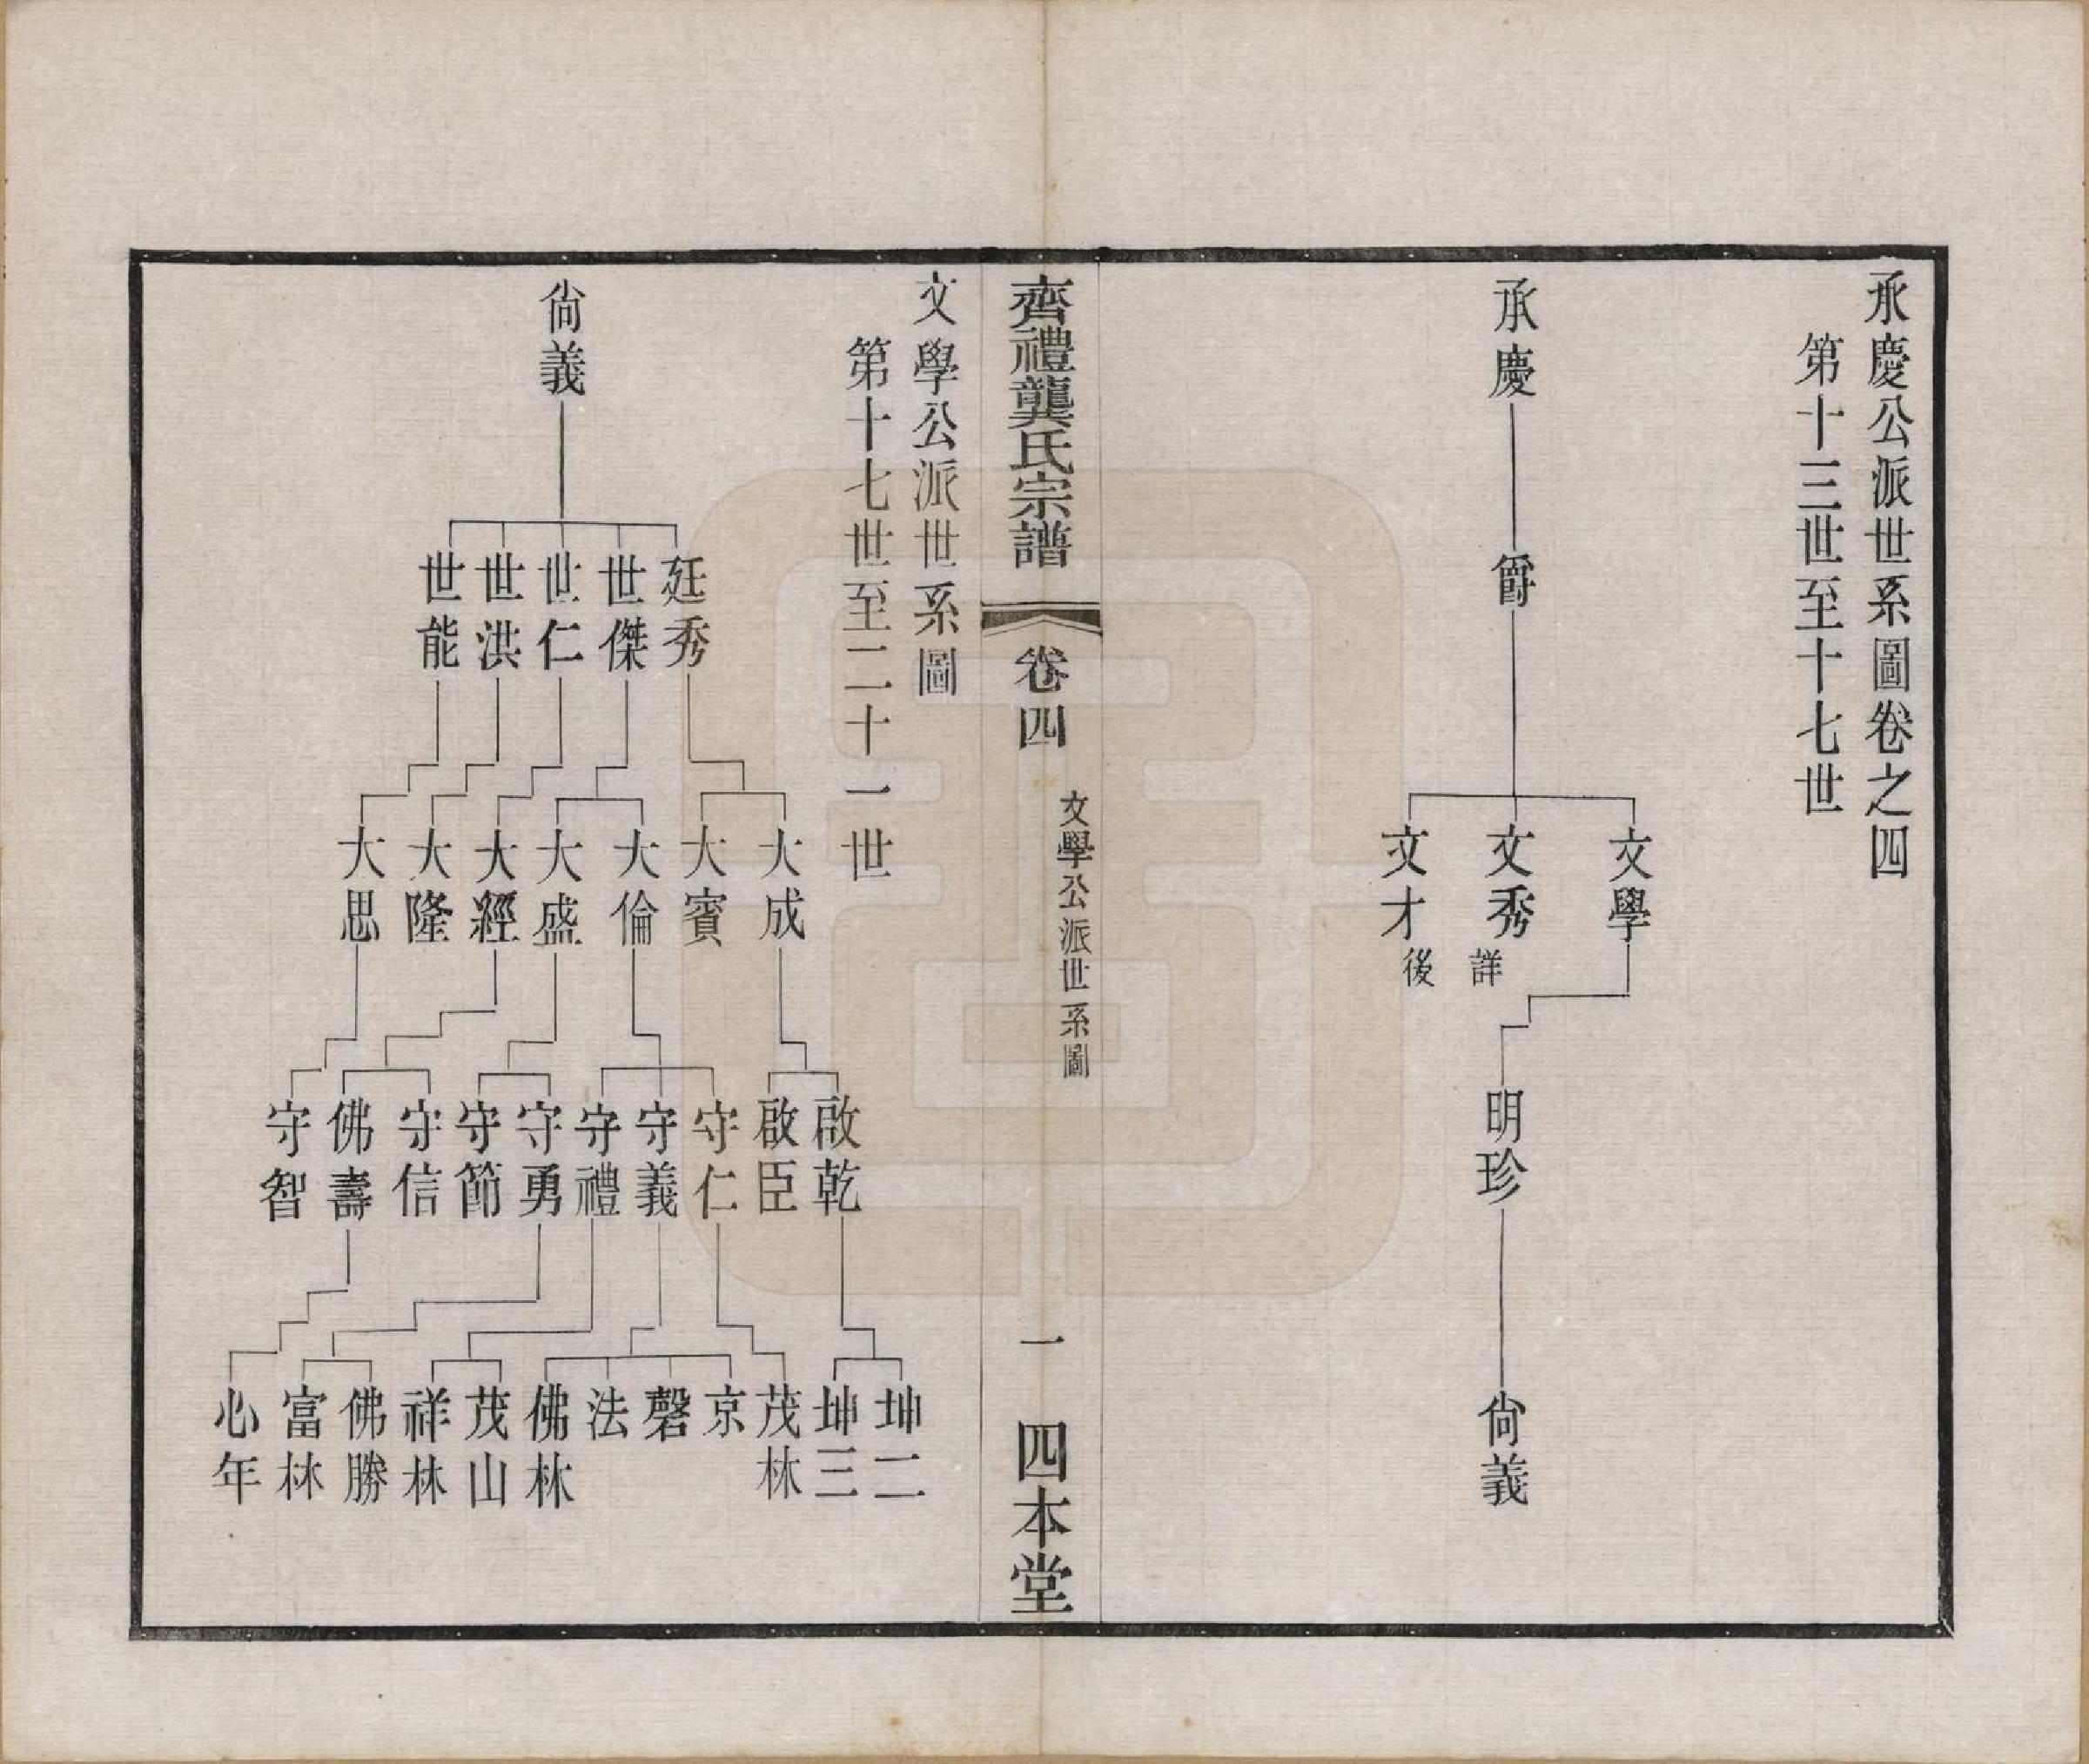 承慶公派世系圖卷之四
第十三世至十七世
承慶
爵
文學
文秀
文才
詳
後
明珍
尙義
齊禮龔氏宗譜
卷四
文學公派世系圖
一
四本堂
文學公派世系圖
第十七世至二十一世
尙義
廷秀
世傑
世仁
世洪
世能
大成
大賓
大倫
大盛
大經
大隆
大思
啟乾
啟臣
守仁
守義
守禮
守勇
守節
守信
佛壽
守智
坤二
坤三
茂林
京
磬
法
佛林
茂山
祥林
佛勝
富林
心年